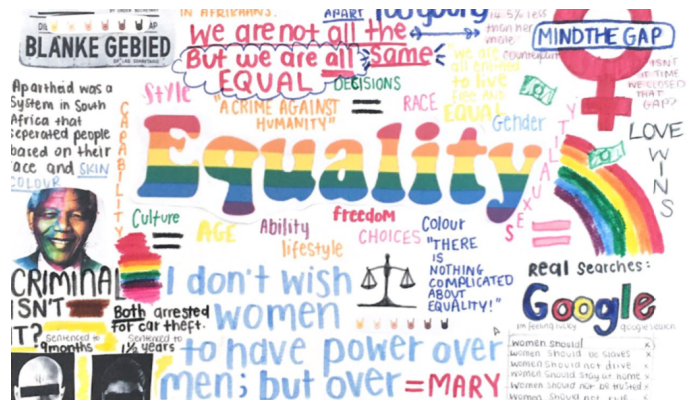 BLANKE GEBIED
IN AFRIKAANS.
APART
TOO young
We are not all the
But we are all same
EQUAL
14.5% less
than her
male
counterpart
MIND THE GAP
ISN'T
IT TIME
WE CLOSED
THAT
GAP?
Apartheid was a
System in South
Africa that
seperated people
based on their
race and SKIN
COLOUR
CAPABILITY
Style
"A CRIME AGAINST
HUMANITY"
DECISIONS
=
RACE
"we are
all entitled
to live
free and
EQUAL
Gender
SEXUALITY
LOVE
WINS
Equality
Culture
=
AGE
Ability
lifestyle
freedom
CHOICES
Colour
"THERE
IS
NOTHING
COMPLICATED
ABOUT
EQUALITY!"
=
CRIMINAL
ISN'T
IT?
Both arrested
for car theft.
Sentenced to
9months
Sentenced to
1½ years
I don't wish
women
to have power over
men; but over
=MARY
Real Searches:
Google
im feeling lucky
google search
women should x
women should be slaves x
women should not drive x
women should stay at home x
women should not be trusted x
women should not run x